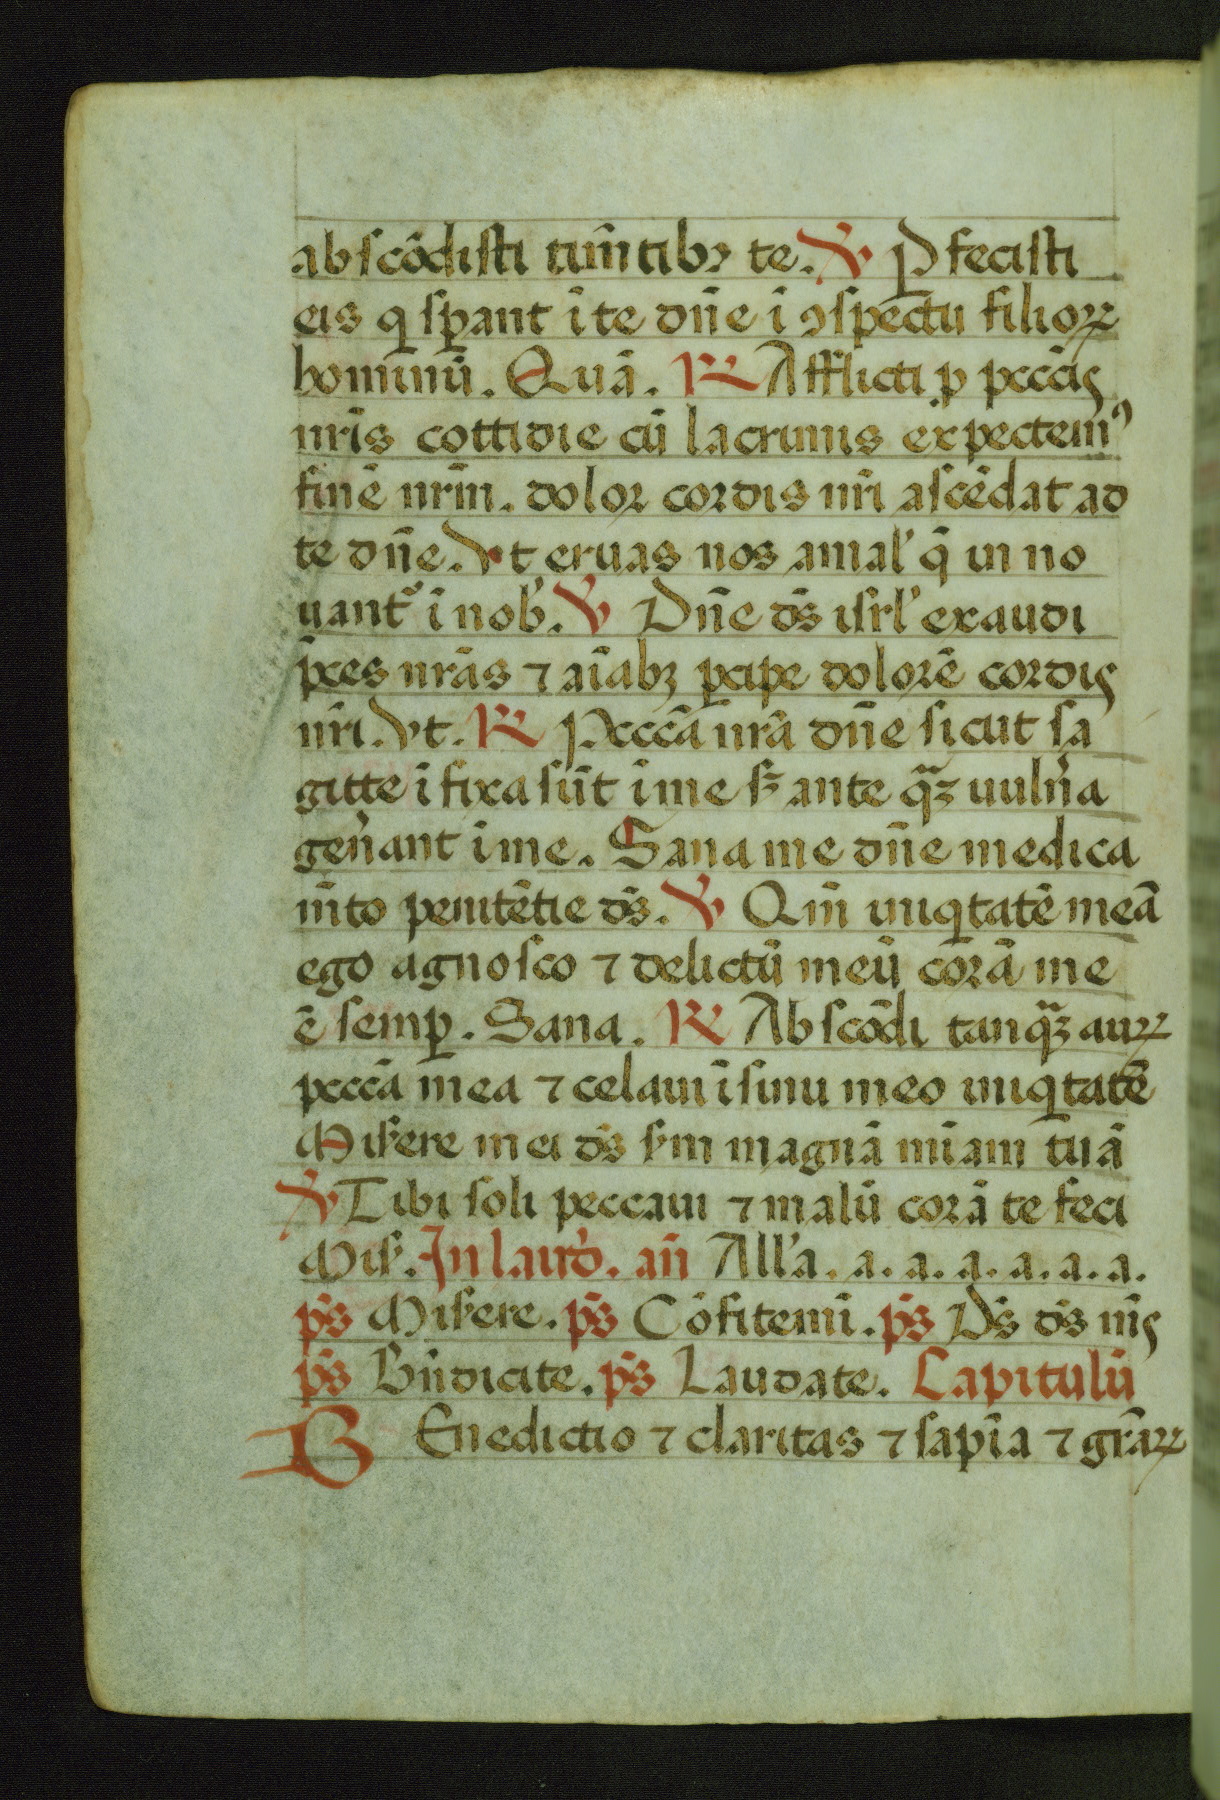 abscōdisti tim̄tibꝫ te. ℣ Ꝑfecisti
eis q sꝑant ī te dn̄e ī ꝯspectu filioꝝ
hominū. Quā. ℟ Afflicti ꝓ pccīs
nr̄is cottidie cū lacrimis expectemꝰ
finē nr̄m. dolor cordis nr̄i ascēdat ad
te dn̄e. Ut eruas nos a mal' q̄ in no
uant᷑ ī nob'. ℣ Dn̄e ds̄ isrl' exaudi
p̄ces nr̄as ⁊ aīabꝫ ꝑcipe dolorē cordis
nr̄i. Ut. ℟ Pcccā nr̄a dn̄e sicut sa
gitte īfixa sūt ī me sꝫ anteqꝫ uuln̄a
gen̄ant ī me. Sana me dn̄e medica
m̄to penitētie ds̄. ℣ Qm̄ iniqtatē meā
ego agnosco ⁊ delictū meū corā me
ē semꝑ. Sana. ℟ Abscōdi tanqꝫ auꝝ
pccā mea ⁊ celaui ī sinu meo iniqtatē
Mis̄ere mei ds̄ s̄m magnā mīam tuā
℣ Tibi soli peccaui ⁊ malū corā te feci
Mis̄. In laud̄. an̄ All'a. a. a. a. a. a. a.
ps̄ Mis̄ere. ps̄ Cōfitemī. ps̄ Ds̄ ds̄ m̄s
ps̄ Bn̄dicite. ps̄ Laudate. Capitulū
BEnedictio ⁊ claritas ⁊ sapīa ⁊ gr̄aꝝ